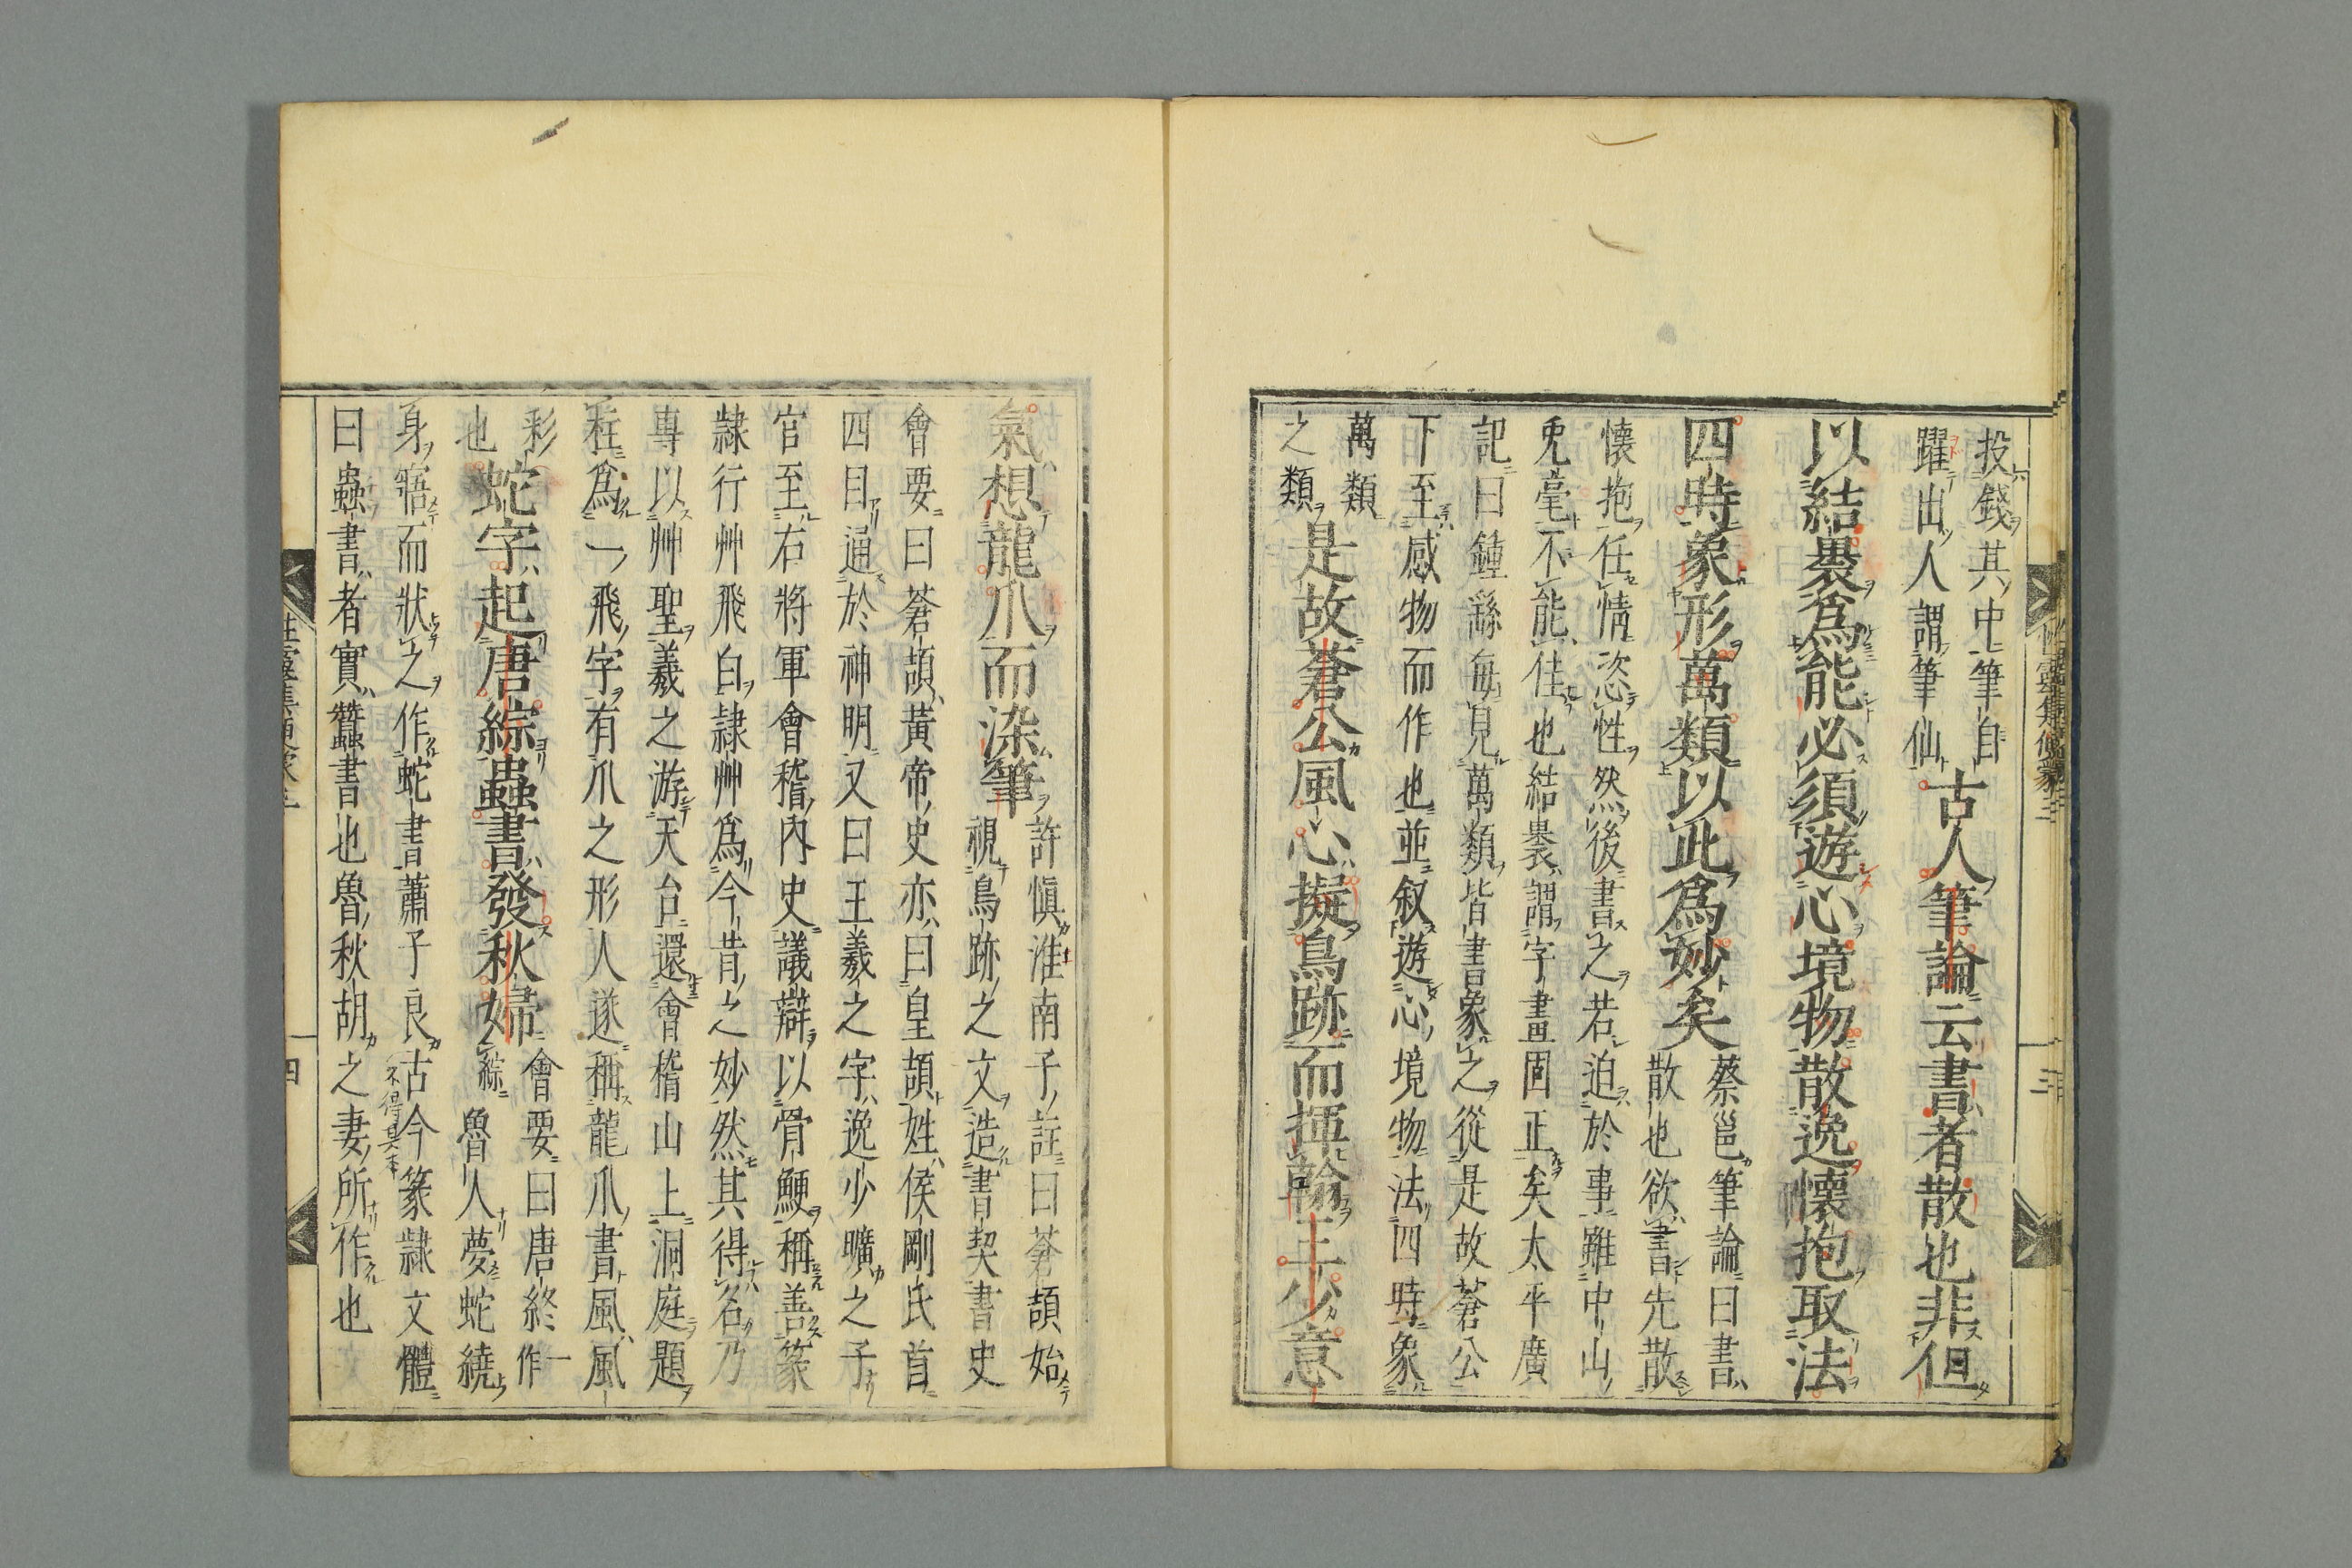 投錢其中筆自
躍出人謂筆仙
古人筆論云書者散也非但
以結褁爲能必須遊心境物散逸懷抱取法
四時象形萬類以此爲妙矣
蔡邕筆論曰書
散也欲書先散
懷抱任情恣性然後書之若迫於事雖中山
兎毫不能佳也結褁謂字畫固正矣太平廣
記曰鍾繇每見萬類皆書象之從是故蒼公
下至感物而作也並叙遊心境物法四時象
萬類
之類
是故蒼公風心擬鳥跡而揮翰王少意
氣想龍爪而染筆
許愼淮南子註曰蒼頡始
視鳥跡之文造書契書史
會要曰蒼頡黃帝史亦曰皇頡姓侯剛氏首
四目通於神明又曰王羲之字逸少曠之子
官至右將軍會稽內史議辯以骨鯁稱善篆
隸行艸飛白隸艸爲今昔之妙然其得名乃
專以艸聖羲之游天台還會稽山上洞庭題
柱爲一飛字有爪之形人遂稱龍爪書風風
彩
也
蛇字起唐綜蟲書發秋婦
會要曰唐終作
綜魯人夢蛇繞
身寤而狀之作蛇書蕭子良古今篆隸文體
曰蟲書者實蠶書也魯秋胡之妻所作也
四
三